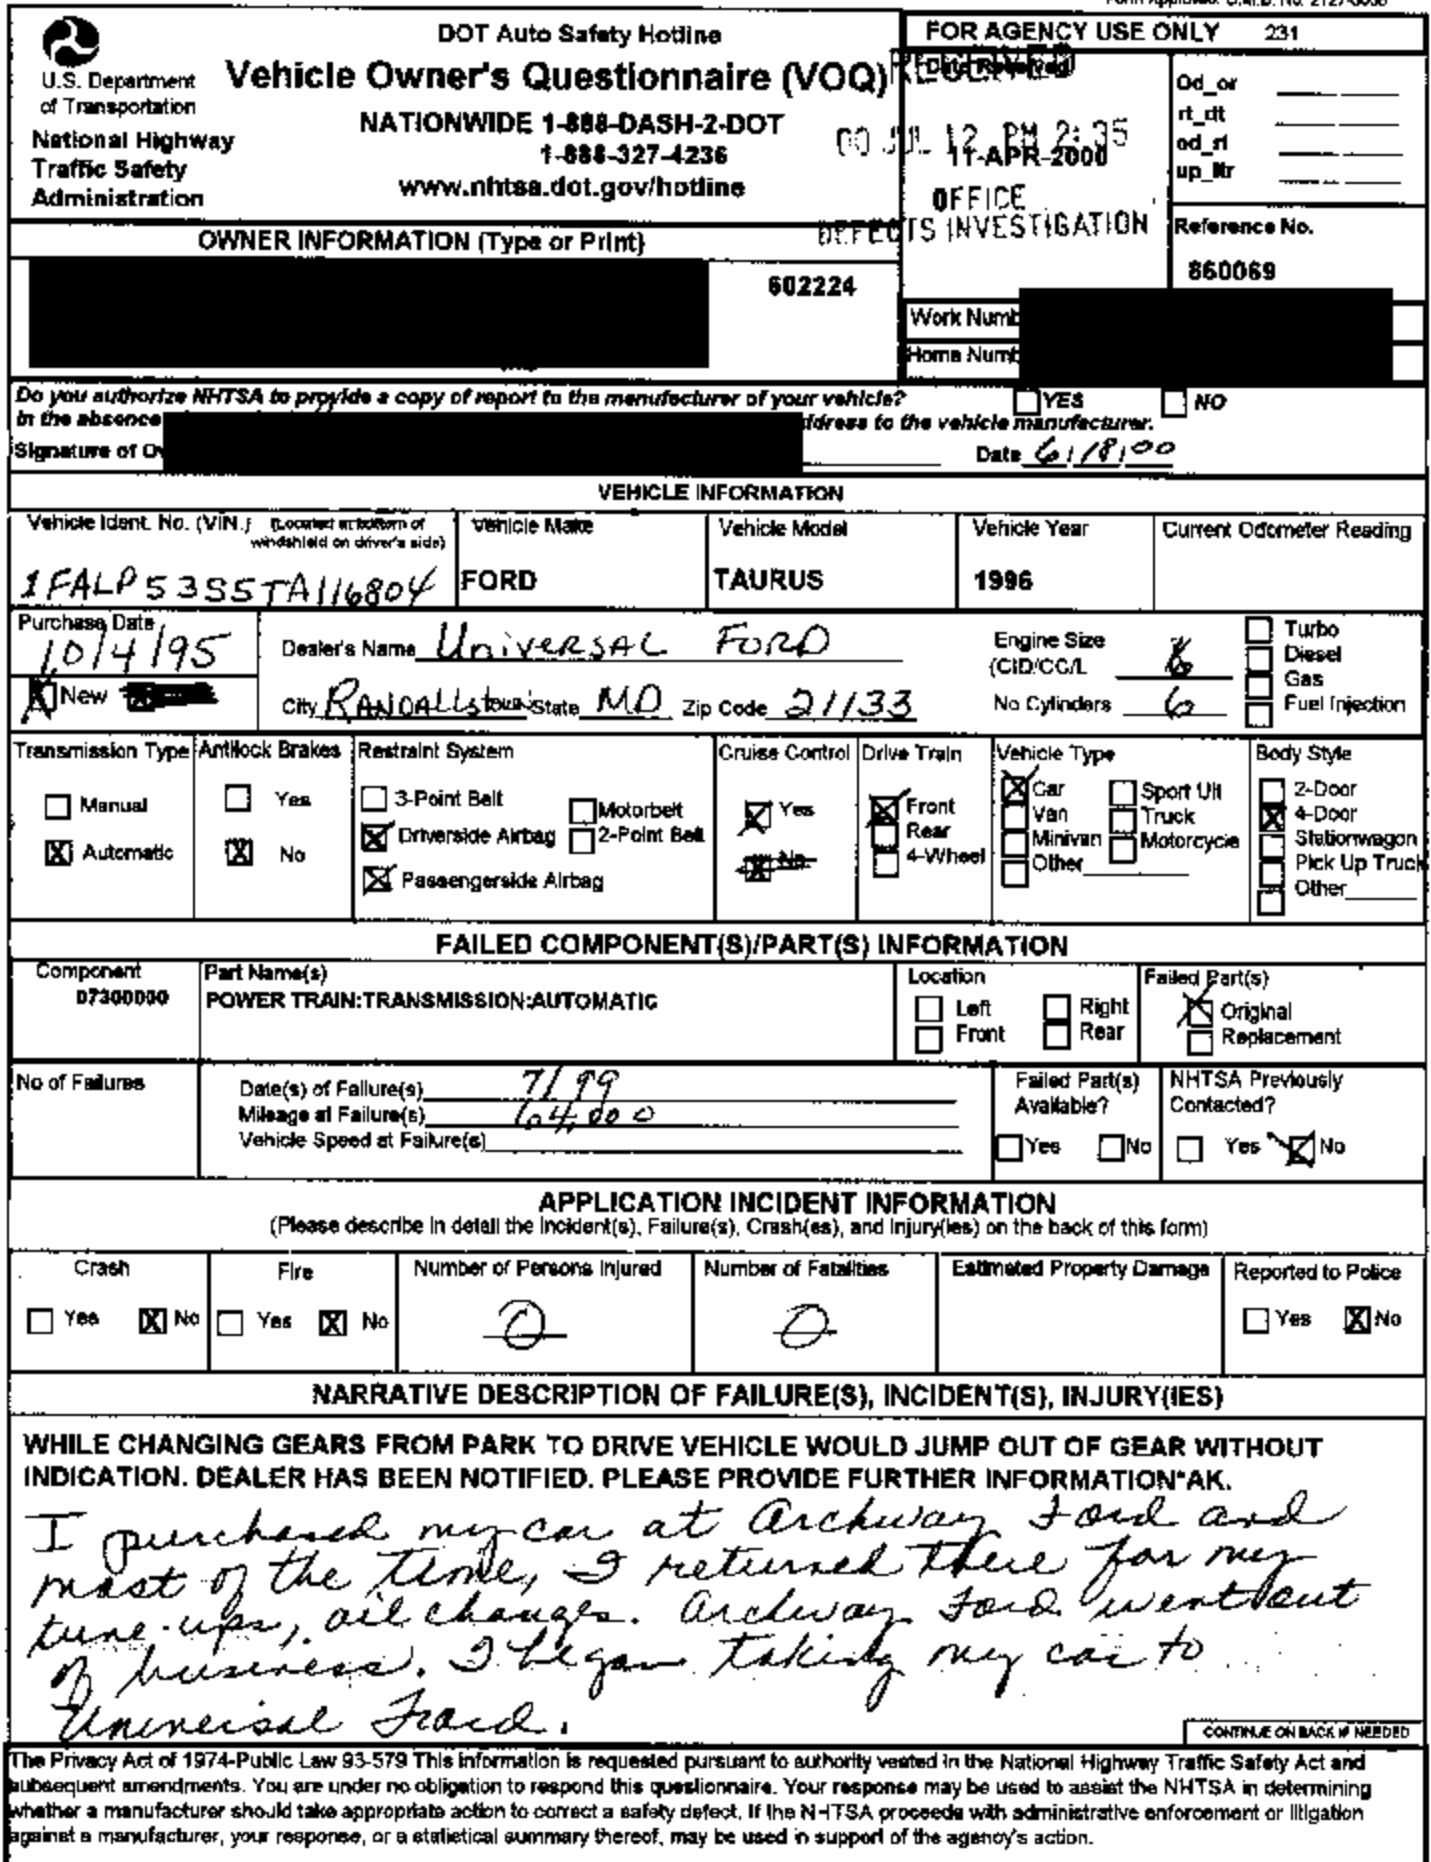 DOT Auto Safety Hotline
Vehicle Owner's Questionnaire (VOQ)
NATIONWIDE 1-888-DASH-2-DOT
1-888-327-4236
www.nhtsa.dot.gov/hotline
U.S. Department
of Transportation
National Highway
Traffic Safety
Administration
FOR AGENCY USE ONLY 231
Date Received
RECEIVED
00 JUL 12 PM 2:35
11-APR-2000
OFFICE
DEFECTS INVESTIGATION
Od_or
rt_dt
od_rl
up_ltr
Reference No.
860069
OWNER INFORMATION (Type or Print)
602224
Work Numb
Home Numb
Do you authorize NHTSA to provide a copy of report to the manufacturer of your vehicle? YES NO
In the absence address to the vehicle manufacturer.
Signature of Ow Date 6/18/00
VEHICLE INFORMATION
Vehicle Ident. No. (VIN.) (Located at bottom of
windshield on driver's side)
1FALP53S5TA116804
Vehicle Make
FORD
Vehicle Model
TAURUS
Vehicle Year
1996
Current Odometer Reading
Purchase Date
10/4/95
New
Dealer's Name Universal Ford
City Randallstown State MD Zip Code 21133
Engine Size
(CID/CC/L
No Cylinders 6
Turbo
Diesel
Gas
Fuel Injection
Transmission Type
Manual
Automatic
Antilock Brakes
Yes
No
Restraint System
3-Point Belt
Driverside Airbag
Passengerside Airbag
Motorbelt
2-Point Belt
Cruise Control
Yes
No
Drive Train
Front
Rear
4-Wheel
Vehicle Type
Car
Van
Minivan
Other
Sport Ult
Truck
Motorcycle
Body Style
2-Door
4-Door
Stationwagon
Pick Up Truck
Other
FAILED COMPONENT(S)/PART(S) INFORMATION
Component
07300000
Part Name(s)
POWER TRAIN:TRANSMISSION:AUTOMATIC
Location
Left Right
Front Rear
Failed Part(s)
Original
Replacement
No of Failures
Date(s) of Failure(s) 7/99
Mileage at Failure(s) 64,000
Vehicle Speed at Failure(s)
Failed Part(s)
Available?
Yes No
NHTSA Previously
Contacted?
Yes No
APPLICATION INCIDENT INFORMATION
(Please describe in detail the incident(s), Failure(s), Crash(es), and Injury(ies) on the back of this form)
Crash
Yes No
Fire
Yes No
Number of Persons Injured
0
Number of Fatalities
0
Estimated Property Damage
Reported to Police
Yes No
NARRATIVE DESCRIPTION OF FAILURE(S), INCIDENT(S), INJURY(IES)
WHILE CHANGING GEARS FROM PARK TO DRIVE VEHICLE WOULD JUMP OUT OF GEAR WITHOUT
INDICATION. DEALER HAS BEEN NOTIFIED. PLEASE PROVIDE FURTHER INFORMATION*AK.
I purchased my car at Archway Ford and
most of the time, I returned there for my
tune-ups, oil changes. Archway Ford went out
of business. I began taking my car to
Universal Ford.
CONTINUE ON BACK IF NEEDED
The Privacy Act of 1974-Public Law 93-579 This information is requested pursuant to authority vested in the National Highway Traffic Safety Act and
subsequent amendments. You are under no obligation to respond this questionnaire. Your response may be used to assist the NHTSA in determining
whether a manufacturer should take appropriate action to correct a safety defect. If the NHTSA proceeds with administrative enforcement or litigation
against a manufacturer, your response, or a statistical summary thereof, may be used in support of the agency's action.